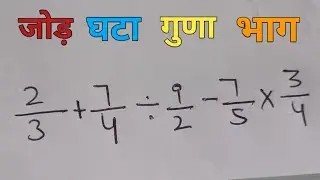 जोड़ घटा गुणा भाग
2/3 + 7/4 ÷ 9/2 - 7/5 × 3/4